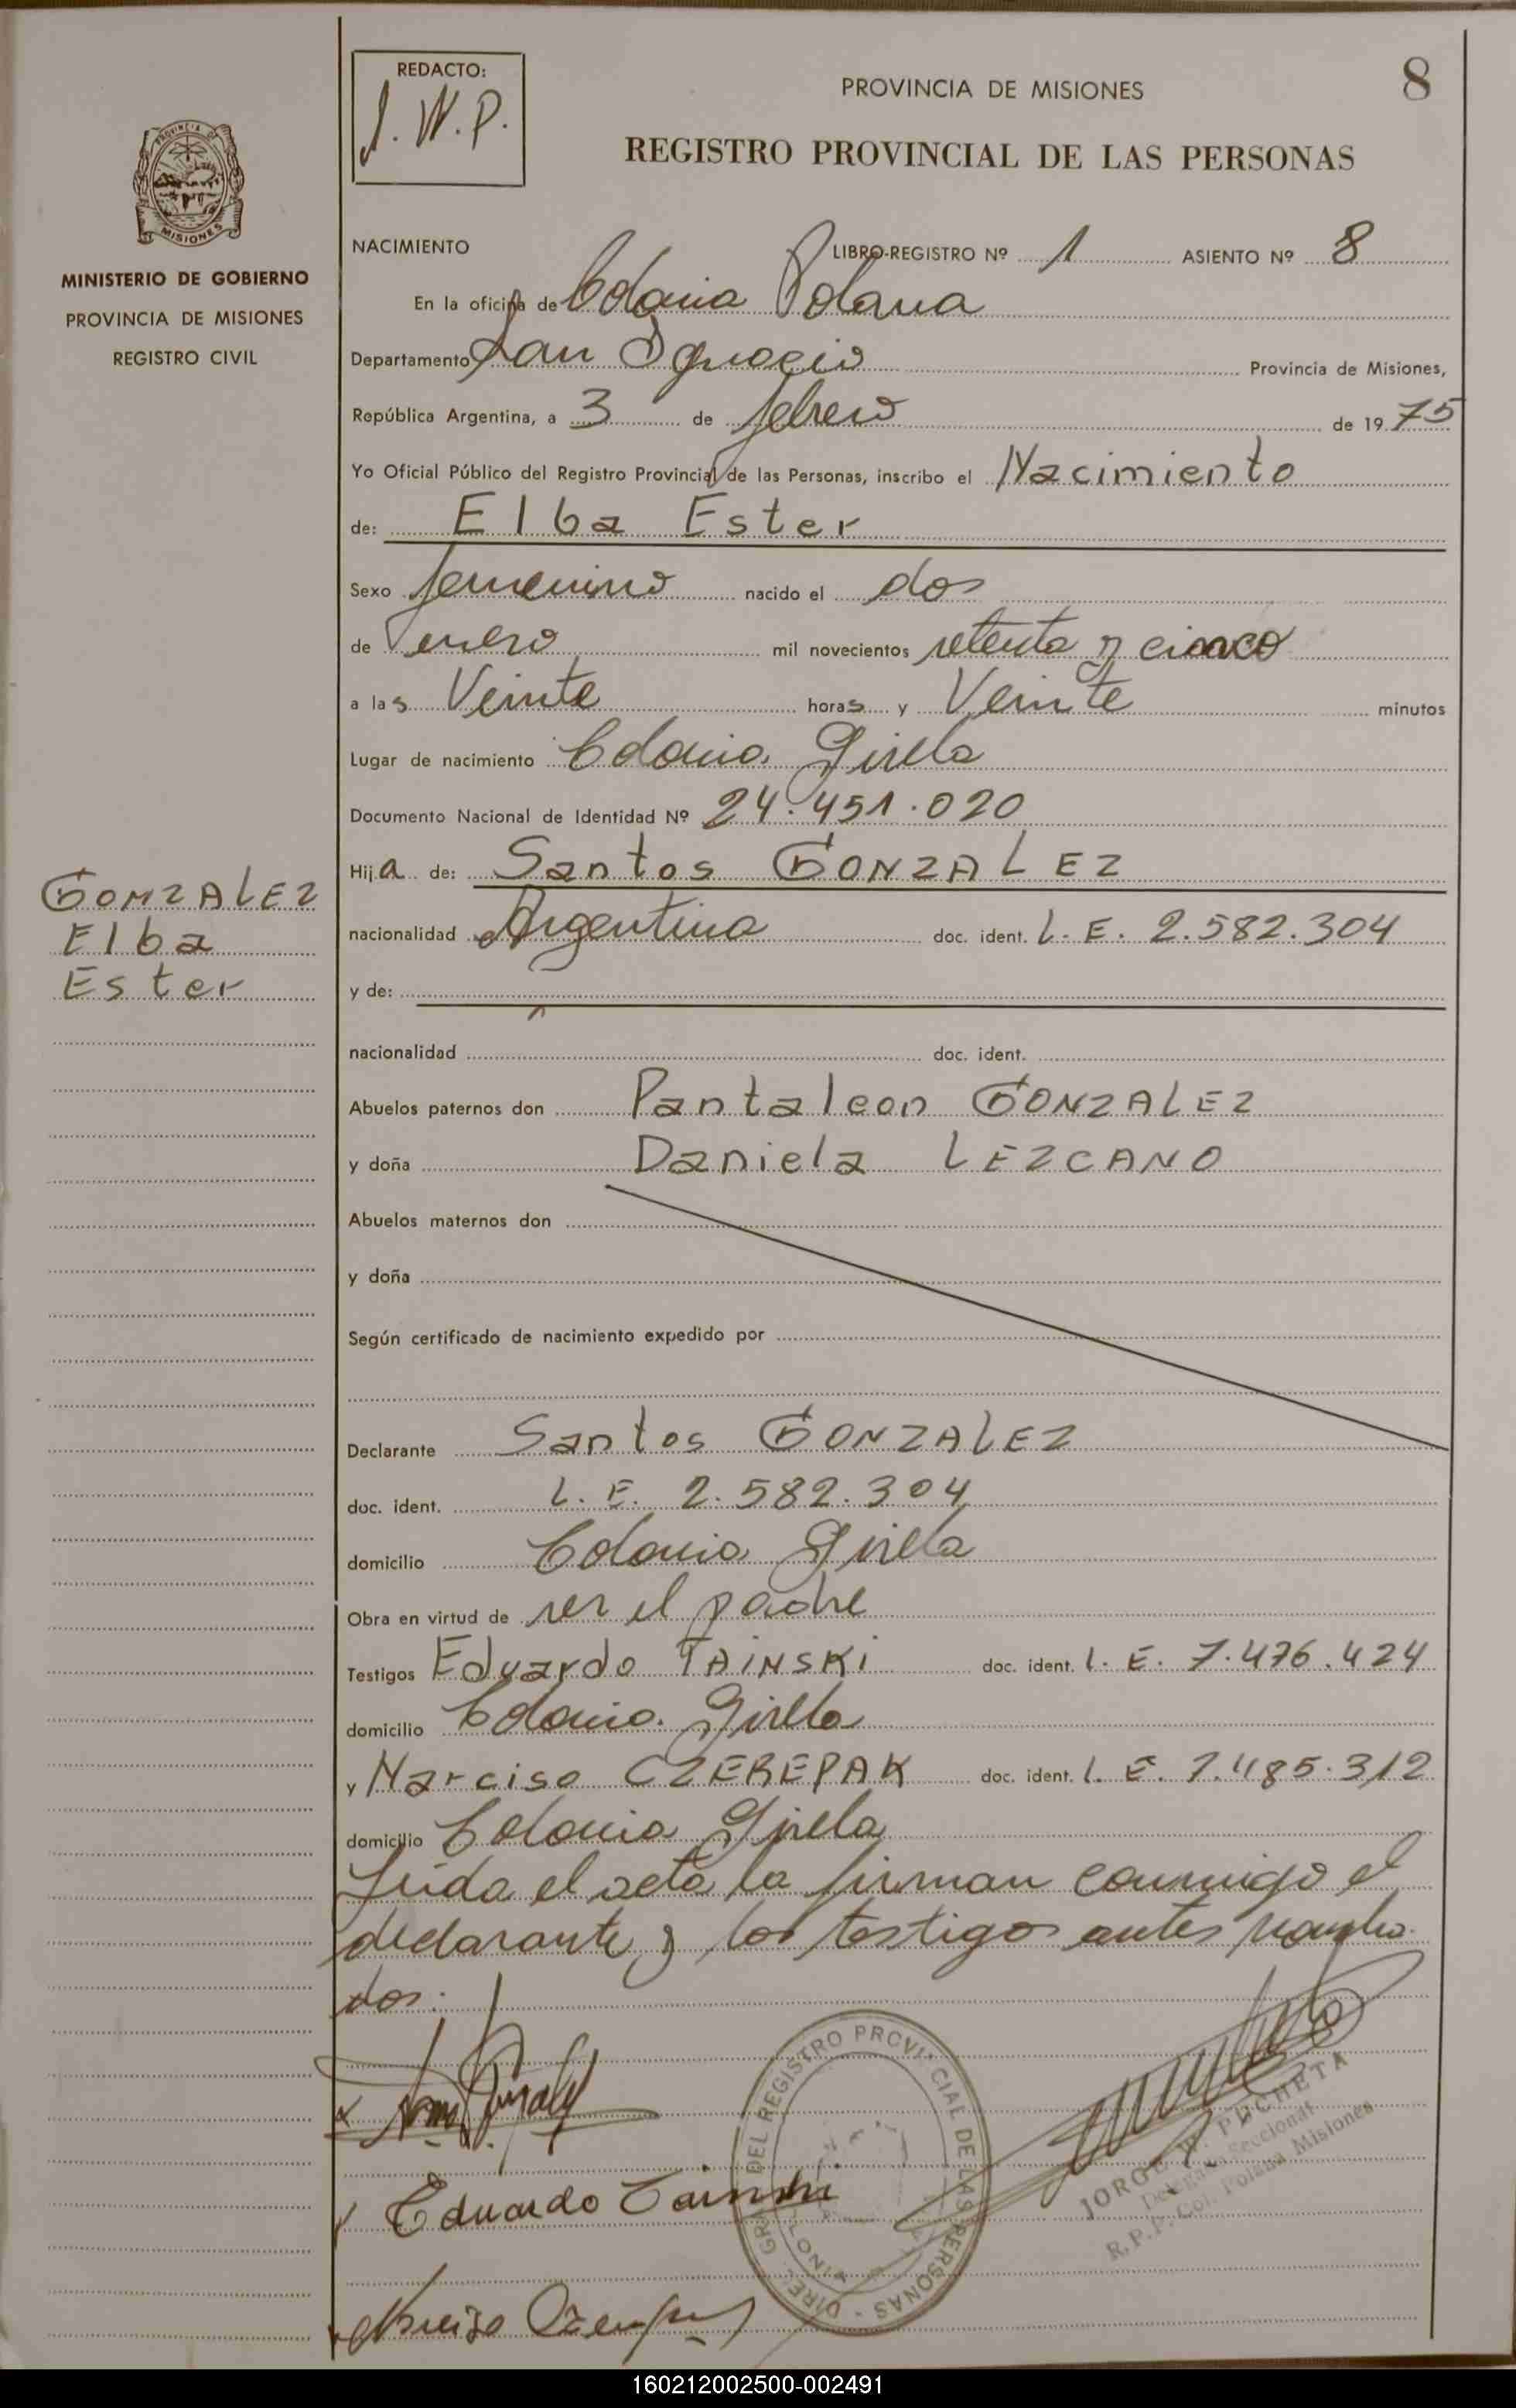 REDACTO:
J. W. P.
PROVINCIA DE MISIONES
8
REGISTRO PROVINCIAL DE LAS PERSONAS
MISIONES
MINISTERIO DE GOBIERNO
PROVINCIA DE MISIONES
REGISTRO CIVIL
NACIMIENTO LIBRO-REGISTRO Nº 1 ASIENTO Nº 8
En la oficina de Colonia Polana
Departamento San Ignacio Provincia de Misiones,
República Argentina, a 3 de febrero de 19 75
Yo Oficial Público del Registro Provincial de las Personas, inscribo el Nacimiento
de: Elba Ester
Sexo femenino nacido el dos
de enero mil novecientos setenta y cinco
a las Veinte horas y Veinte minutos
Lugar de nacimiento Colonia Gisela
Documento Nacional de Identidad Nº 24.451.020
Hija de: Santos GONZALEZ
GONZALEZ
Elba
Ester
nacionalidad Argentina doc. ident. L. E. 2.582.304
y de:
nacionalidad doc. ident.
Abuelos paternos don Pantaleon GONZALEZ
y doña Daniela LEZCANO
Abuelos maternos don
y doña
Según certificado de nacimiento expedido por
Declarante Santos GONZALEZ
doc. ident. L. E. 2.582.304
domicilio Colonia Gisela
Obra en virtud de ser el padre
Testigos Eduardo TAINSKI doc. ident. L. E. 7.476.424
domicilio Colonia Gisela
y Narciso CZEREPAK doc. ident. L. E. 7.485.312
domicilio Colonia Gisela
Leída el acta la firman conmigo el
declarante y los testigos antes nombra
dos.
DIREC. GRAL. DEL REGISTRO PROVINCIAL DE LAS PERSONAS
JORGE W. PECHETA
Delegado Seccional
R. P. P. Col. Polana Misiones
Eduardo Tainski
160212002500-002491